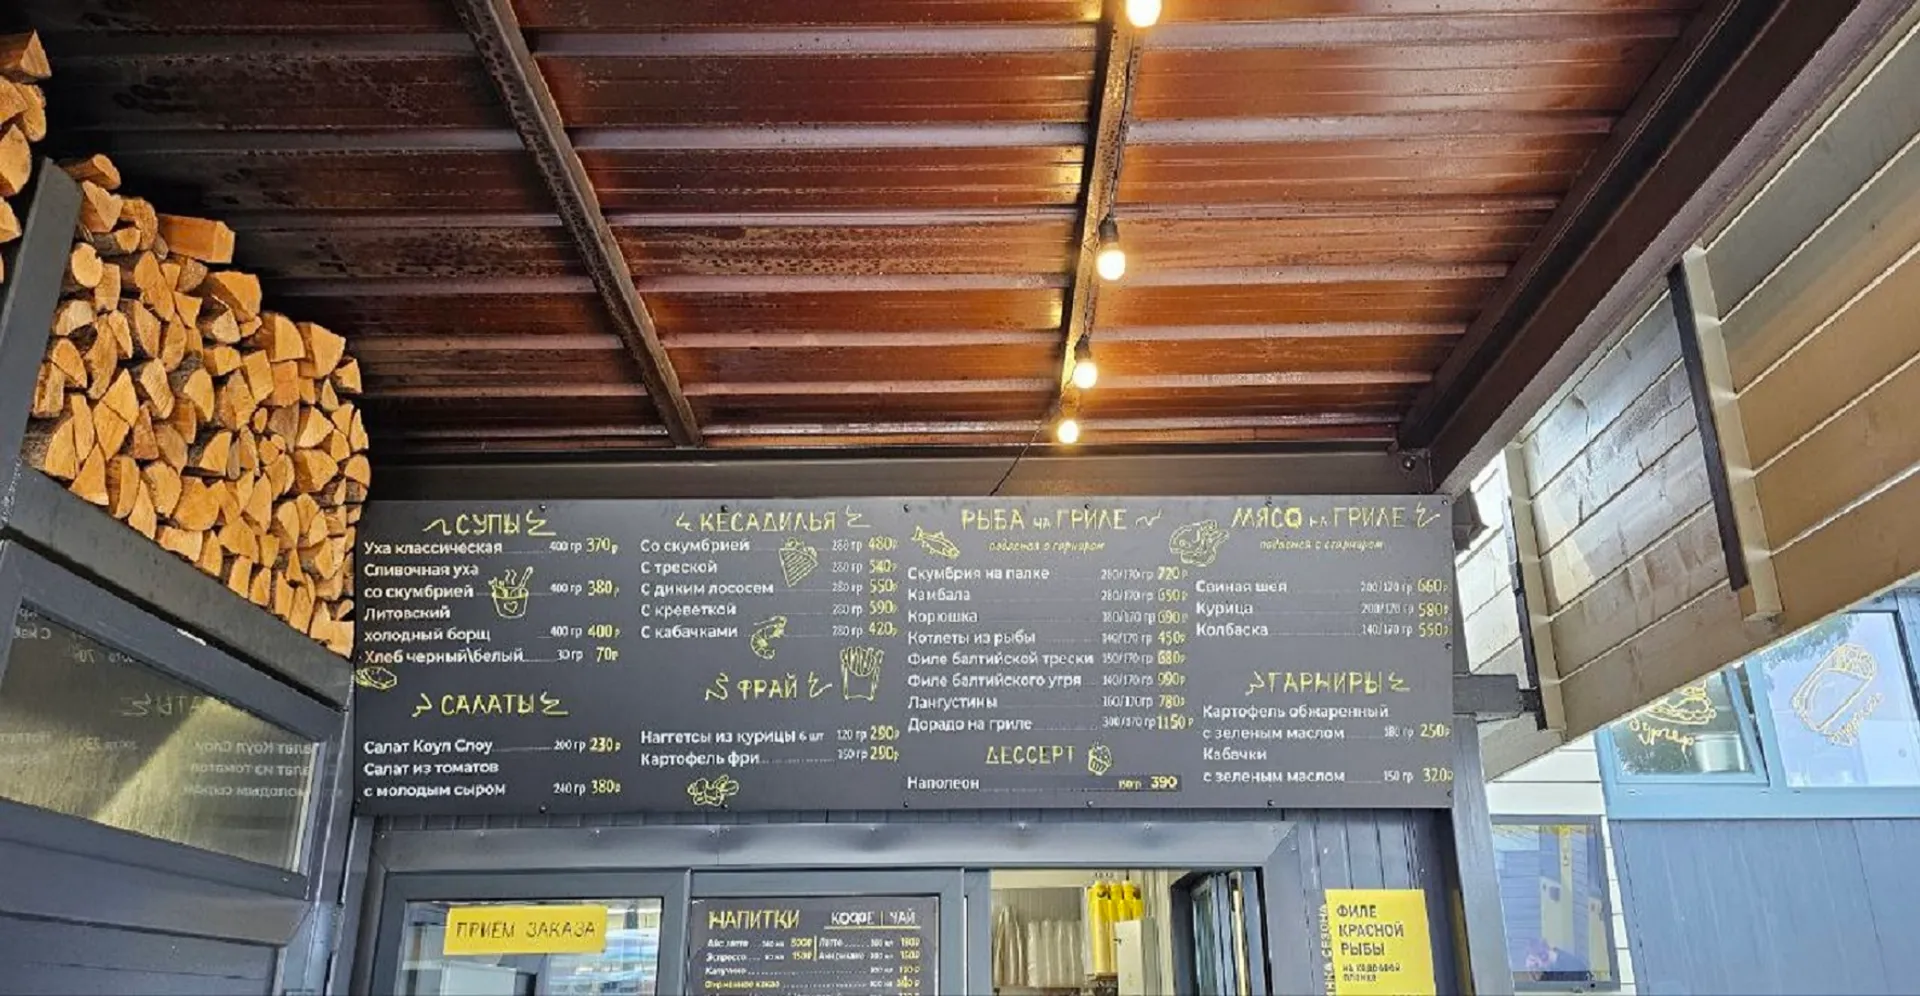 СУПЫ
Уха классическая 400 гр 370р
Сливочная уха
со скумбрией 400 гр 380р
Литовский
холодный борщ 400 гр 400р
Хлеб черный\белый 30 гр 70р
САЛАТЫ
Салат Коул Слоу 200 гр 230р
Салат из томатов
с молодым сыром 240 гр 380р
КЕСАДИЛЬЯ
Со скумбрией 280 гр 480р
С треской 280 гр 540р
С диким лососем 280 гр 550р
С креветкой 280 гр 590р
С кабачками 280 гр 420р
ФРАЙ
Наггетсы из курицы 6 шт 120 гр 290р
Картофель фри 150 гр 290р
РЫБА на ГРИЛЕ
подается с гарниром
Скумбрия на палке 280/170 гр 720р
Камбала 280/170 гр 650р
Корюшка 180/170 гр 690р
Котлеты из рыбы 140/170 гр 450р
Филе балтийской трески 150/170 гр 680р
Филе балтийского угря 140/170 гр 990р
Лангустины 160/170 гр 780р
Дорадо на гриле 300/170 гр 1150р
ДЕССЕРТ
Наполеон 150 гр 390
МЯСО на ГРИЛЕ
подается с гарниром
Свиная шея 200/170 гр 660р
Курица 200/170 гр 580р
Колбаска 140/170 гр 550р
ГАРНИРЫ
Картофель обжаренный
с зеленым маслом 180 гр 250р
Кабачки
с зеленым маслом 150 гр 320р
ПРИЕМ ЗАКАЗА
НАПИТКИ КОФЕ | ЧАЙ
Айс латте 300р Латте
Эспрессо 150р Американо
Капучино
ФИЛЕ
КРАСНОЙ
РЫБЫ
НА КЕДРОВОЙ
ПЛАНКЕ